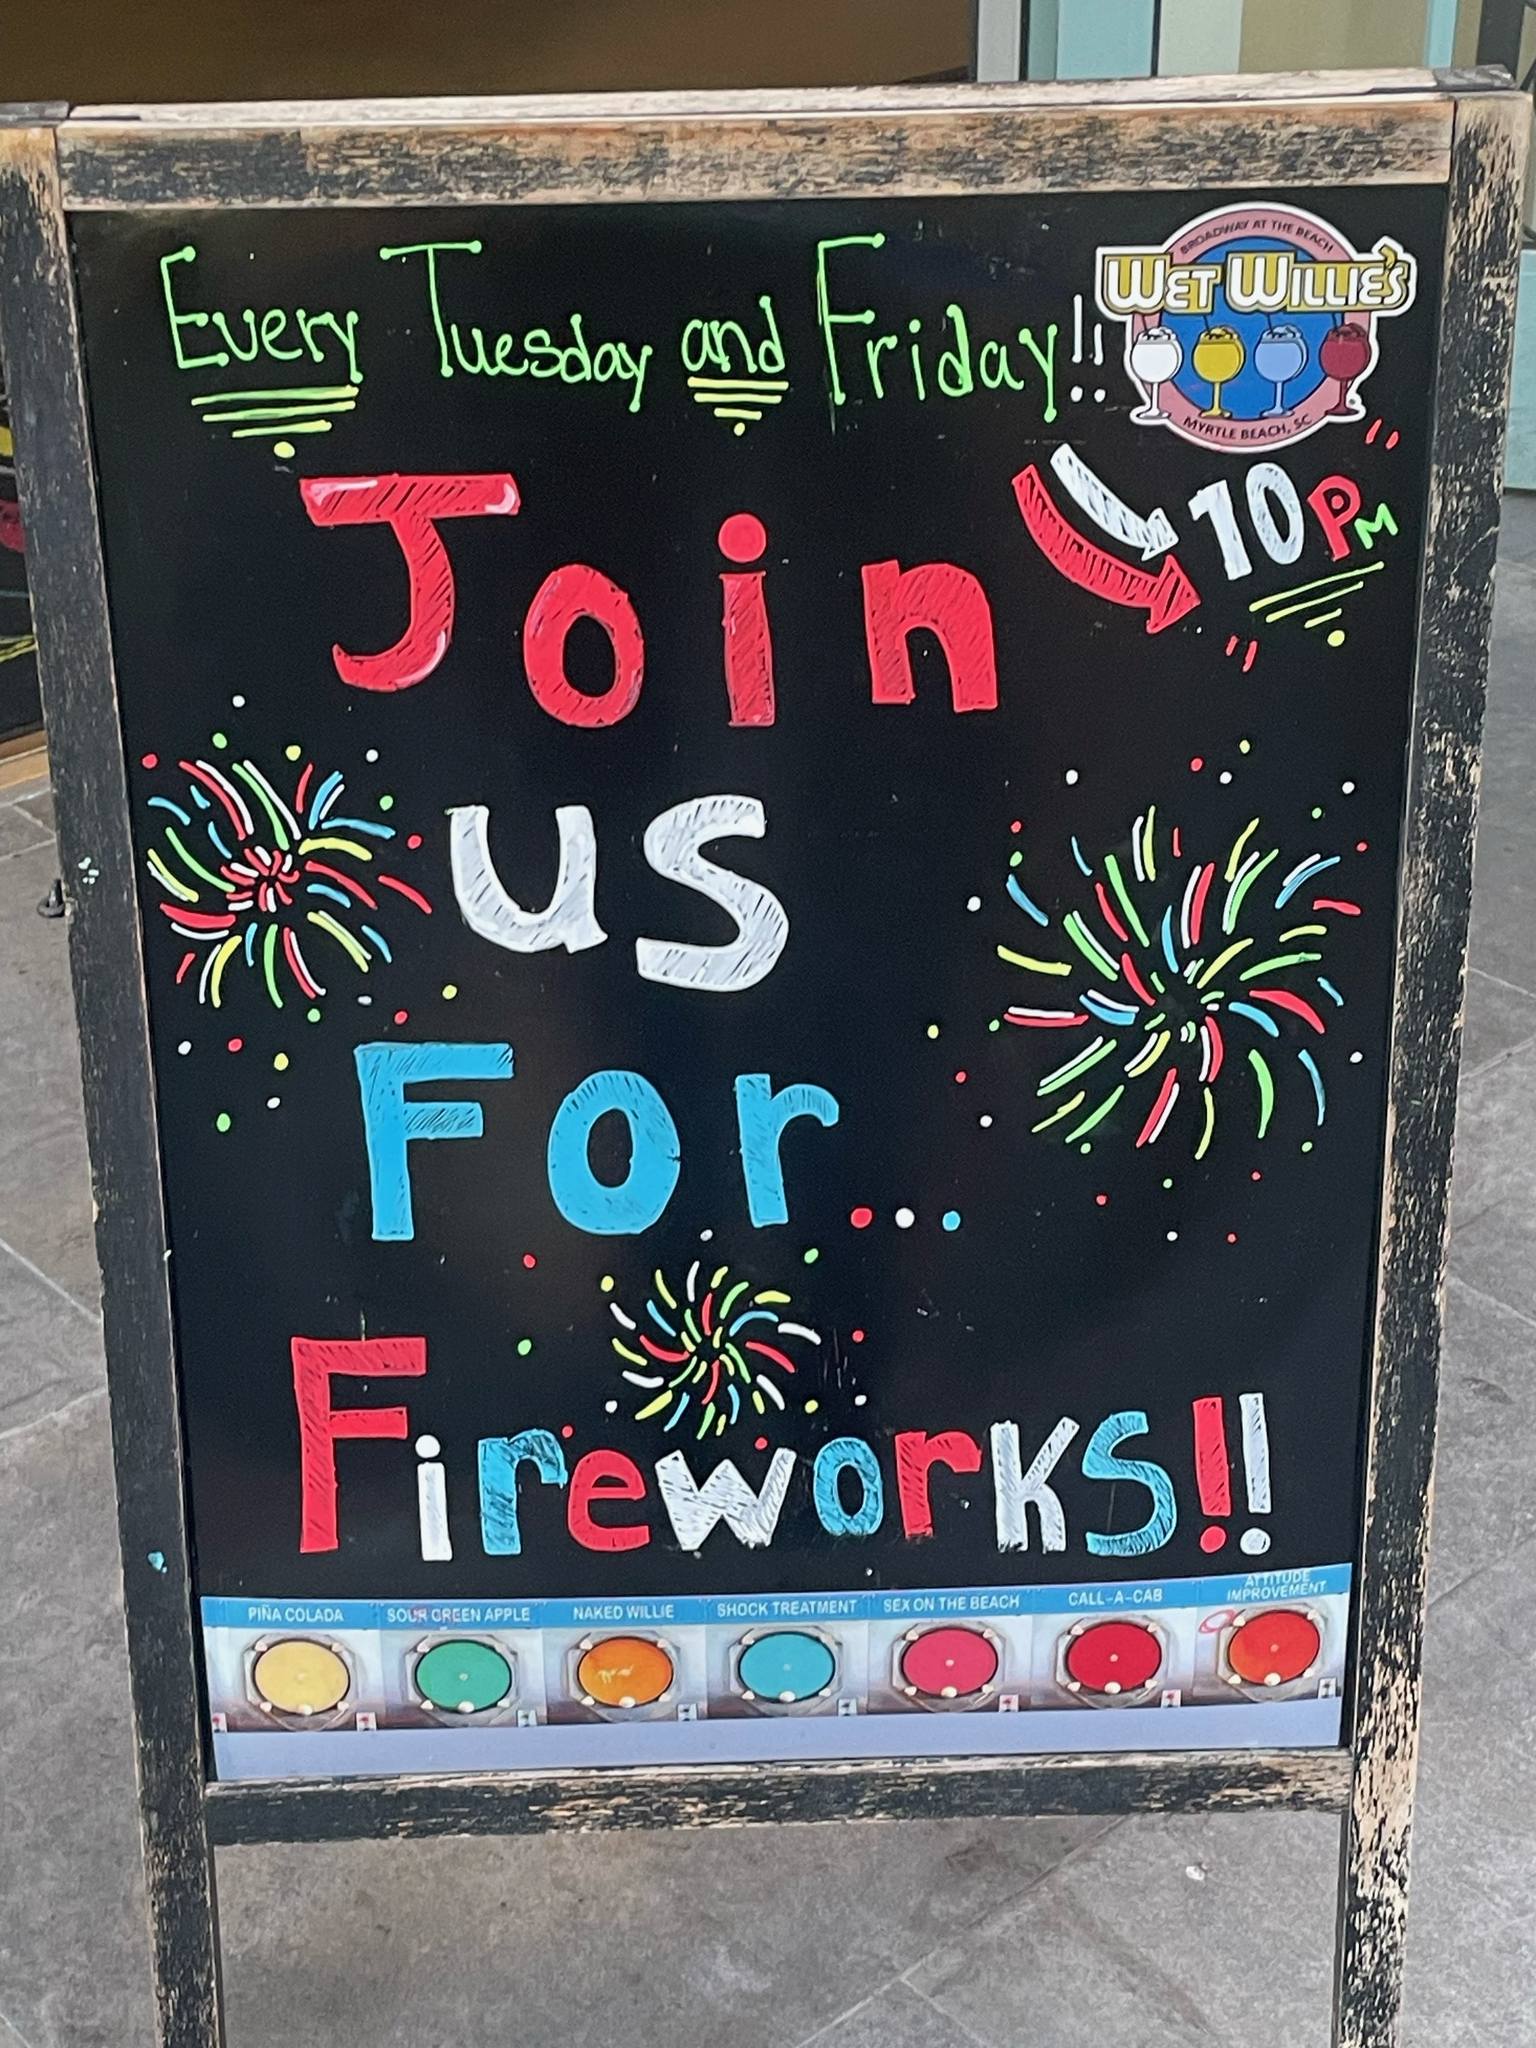 Every Tuesday and Friday!!
BROADWAY AT THE BEACH
WET WILLIE'S
MYRTLE BEACH, SC
10PM
Join
us
For...
Fireworks!!
PIÑA COLADA
SOUR GREEN APPLE
NAKED WILLIE
SHOCK TREATMENT
SEX ON THE BEACH
CALL-A-CAB
ATTITUDE
IMPROVEMENT